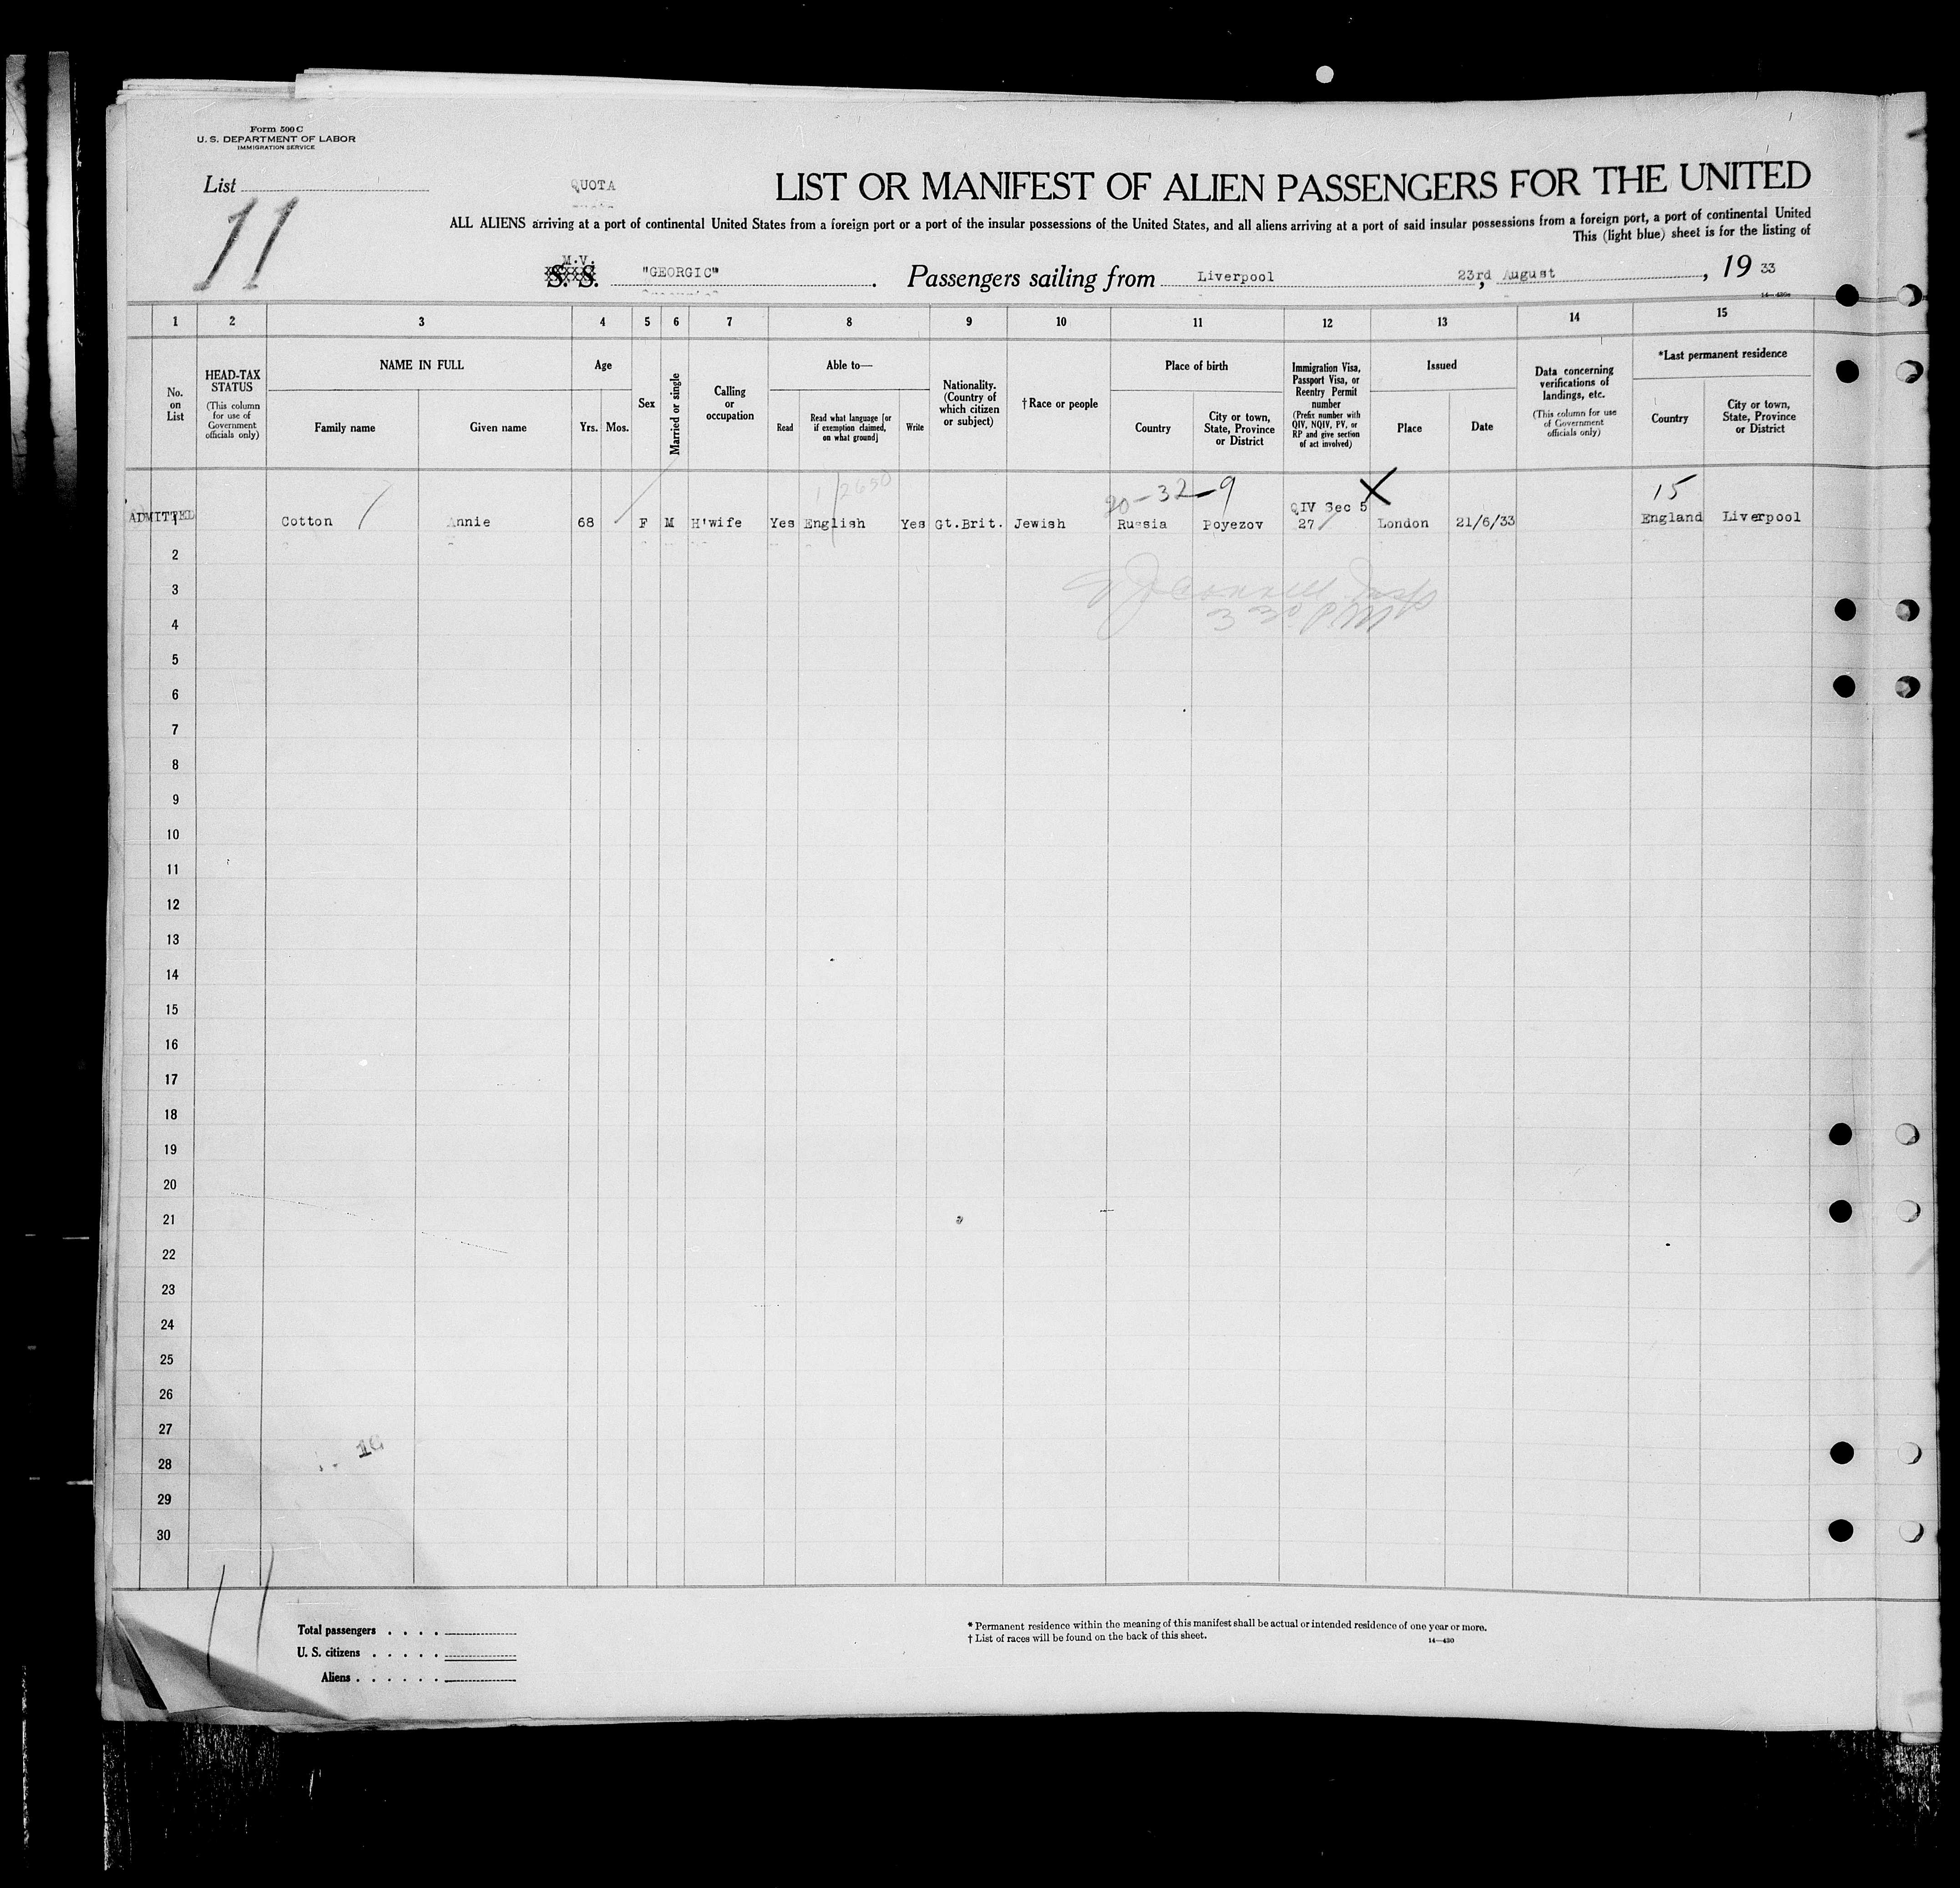 Form 500 C
U. S. DEPARTMENT OF LABOR
IMMIGRATION SERVICE
List
11
QUOTA
LIST OR MANIFEST OF ALIEN PASSENGERS FOR THE UNITED
ALL ALIENS arriving at a port of continental United States from a foreign port or a port of the insular possessions of the United States, and all aliens arriving at a port of said insular possessions from a foreign port, a port of continental United
This (light blue) sheet is for the listing of
M.V.
S. S. "GEORGIC". Passengers sailing from Liverpool, 23rd August, 19 33
14—430c
1 2 3 4 5 6 7 8 9 10 11 12 13 14 15
No. on List
HEAD-TAX STATUS (This column for use of Government officials only)
NAME IN FULL
Family name Given name
Age
Yrs. Mos.
Sex
Married or single
Calling or occupation
Able to—
Read Read what language [or if exemption claimed, on what ground] Write
Nationality. (Country of which citizen or subject)
†Race or people
Place of birth
Country City or town, State, Province or District
Immigration Visa, Passport Visa, or Reentry Permit number (Prefix number with QIV, NQIV, PV, or RP and give section of act involved)
Issued
Place Date
Data concerning verifications of landings, etc. (This column for use of Government officials only)
*Last permanent residence
Country City or town, State, Province or District
1 2650 20-32-9 X 15
QIV Sec 5
ADMITTED 1 Cotton Annie 68 F M H'wife Yes English Yes Gt.Brit. Jewish Russia Poyezov 27 London 21/6/33 England Liverpool
2
3
3 30 PM
4
5
6
7
8
9
10
11
12
13
14
15
16
17
18
19
20
21
22
23
24
25
26
27
28
29
30
11
Total passengers . . . .
U. S. citizens . . . . .
Aliens . . . . . .
* Permanent residence within the meaning of this manifest shall be actual or intended residence of one year or more.
† List of races will be found on the back of this sheet.
14—430